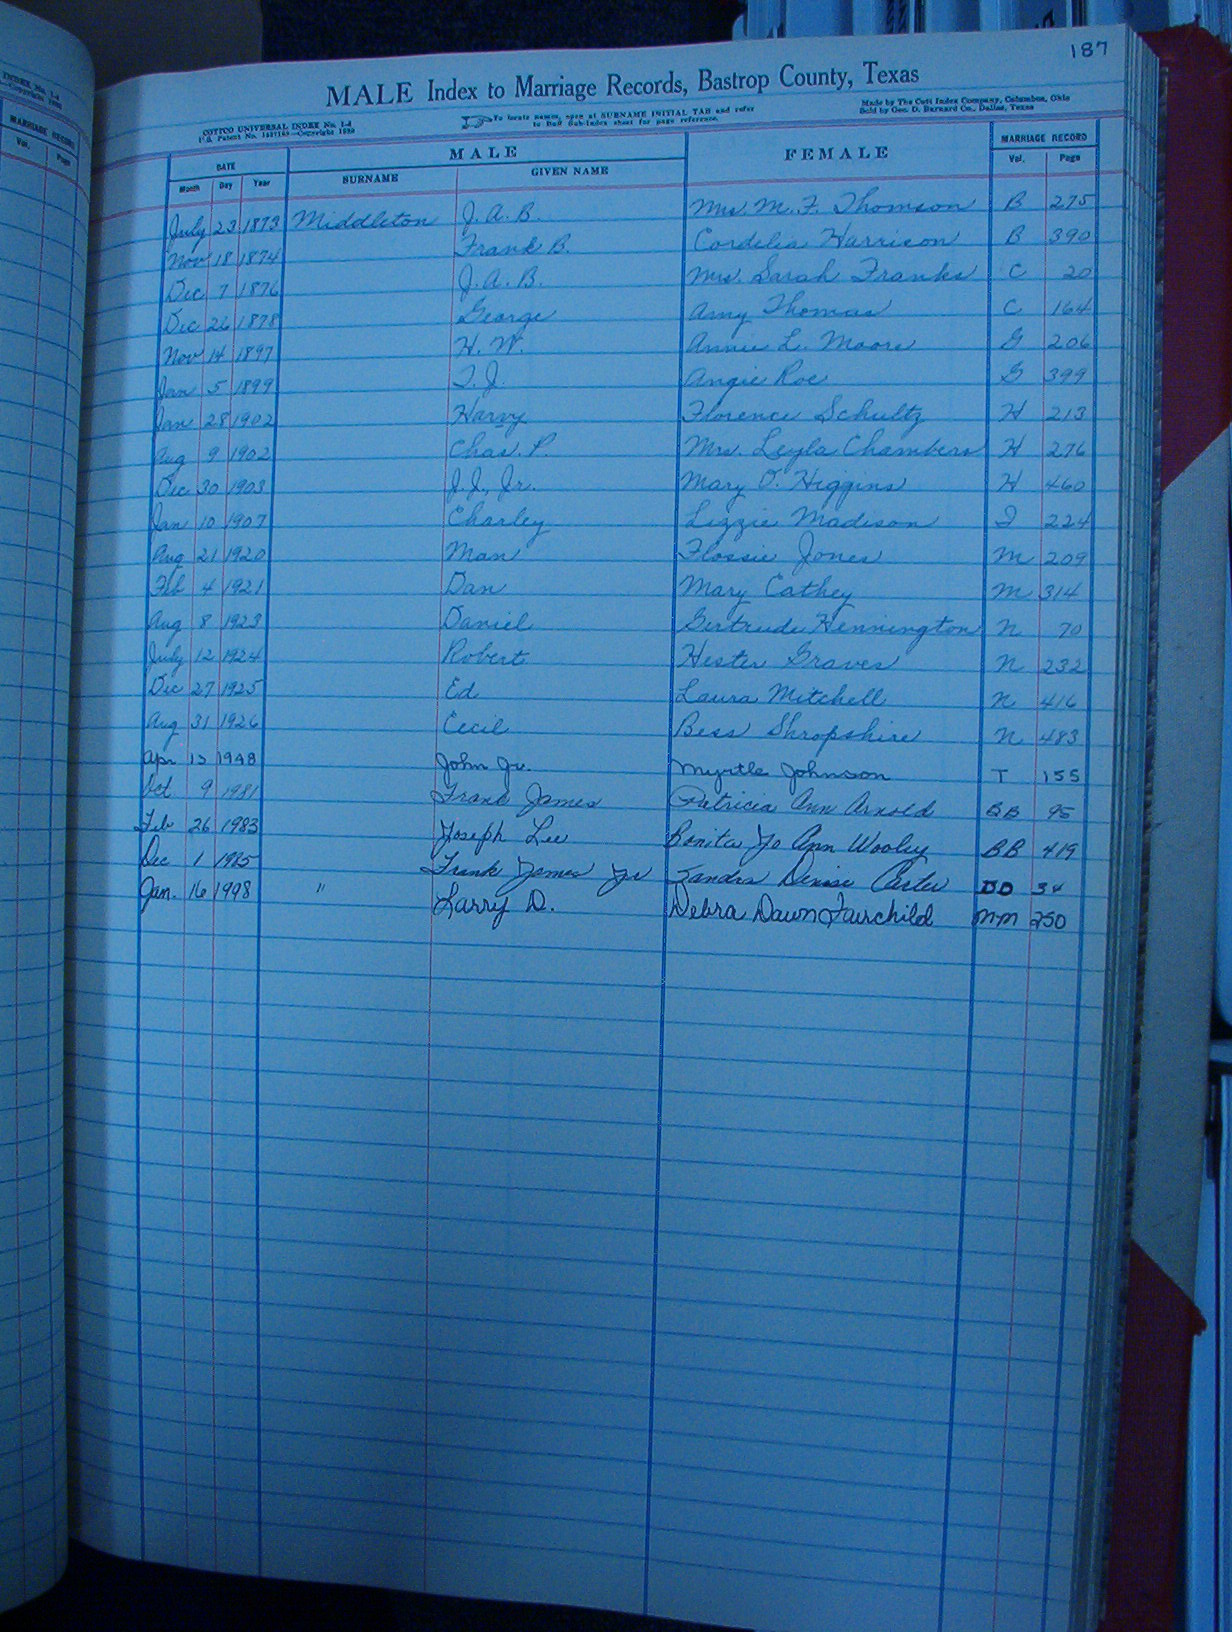 187
MALE Index to Marriage Records, Bastrop County, Texas
COTICO UNIVERSAL INDEX No. 1-4
To locate names, open at SURNAME INITIAL TAB and refer
to Buff Sub-Index sheet for page reference.
Made by The Cott Index Company, Columbus, Ohio
Sold by Geo. D. Barnard Co., Dallas, Texas
DATE MALE FEMALE MARRIAGE RECORD
Month Day Year SURNAME GIVEN NAME Vol. Page
July 23 1873 Middleton J. A. B. Mrs. M. F. Thomson B 275
Nov 18 1874 Frank B. Cordelia Harrison B 390
Dec 7 1876 J. A. B. Mrs. Sarah Franks C 20
Dec 26 1878 George Amy Thomas C 164
Nov 14 1897 H. W. Annie L. Moore G 206
Jan 5 1899 T. J. Angie Roe G 399
Jan 28 1902 Harvy Florence Schultz H 213
Aug 9 1902 Chas. P. Mrs. Leyla Chambers H 276
Dec 30 1903 J. J., Jr. Mary O. Higgins H 460
Jan 10 1907 Charley Lizzie Madison I 224
Aug 21 1920 Man Flossie Jones M 209
Feb 4 1921 Dan Mary Cathey M 314
Aug 8 1923 Daniel Gertrude Hennington N 70
July 12 1924 Robert Hester Graves N 232
Dec 27 1925 Ed Laura Mitchell N 416
Aug 31 1926 Cecil Bess Shropshire N 483
Apr 13 1948 John Jr. Myrtle Johnson T 155
Oct 9 1981 Frank James Patricia Ann Arnold BB 95
Feb 26 1983 Joseph Lee Bonita Jo Ann Wooley BB 419
Dec 1 1985 Frank James Jr Zandra Denise Carter DD 34
Jan. 16 1998 " Larry D. Debra Dawn Fairchild MM 250
MARRIAGE RECORD
Vol. Page